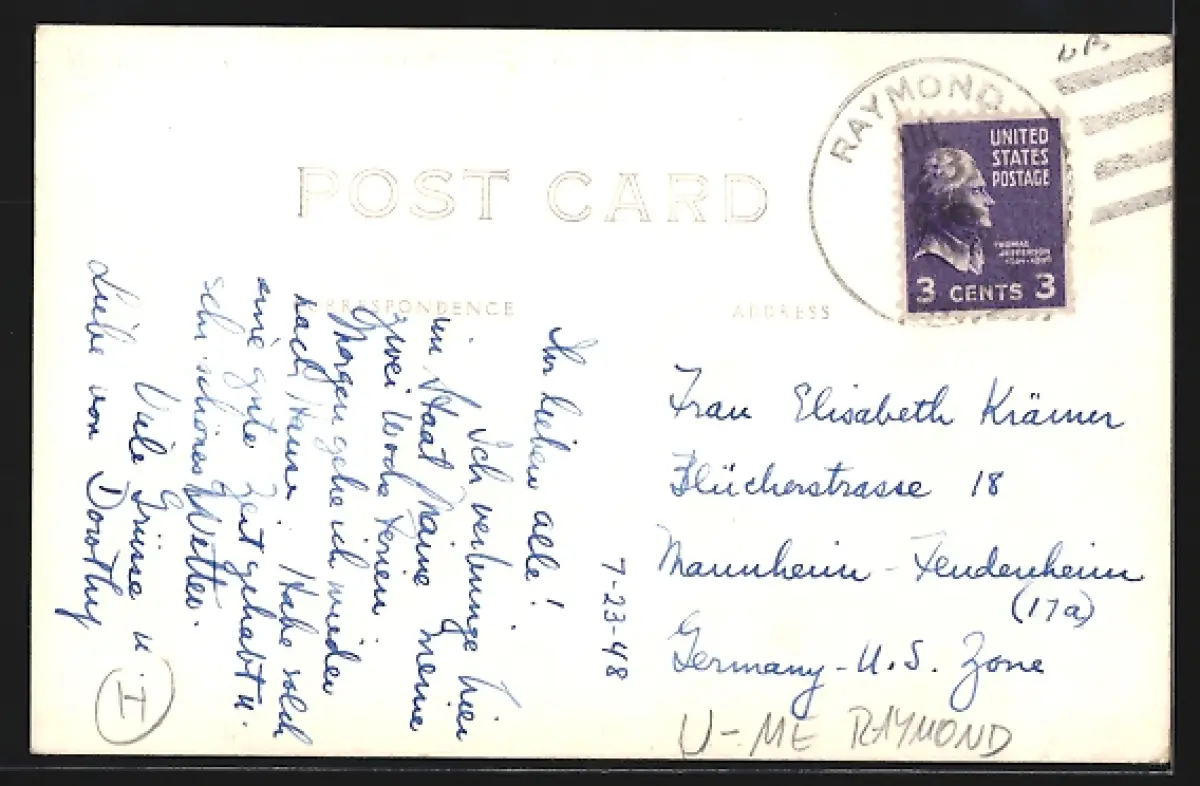 POST CARD
CORRESPONDENCE
ADDRESS
RAYMOND
UNITED
STATES
POSTAGE
THOMAS
JEFFERSON
3 CENTS 3
7-23-48
Ihr lieben alle!
Ich verbringe hier
im Staat Maine meine
zwei Woche Ferien.
Morgen gehe ich wieder
nach Hause. Habe solch
eine gute Zeit gehabt u.
sehr schönes Wetter.
Viele Grüsse u
Liebe von Dorothy
Frau Elisabeth Krämer
Blücherstrasse 18
Mannheim - Feudenheim
(17a)
Germany - U.S. Zone
I
U-ME RAYMOND